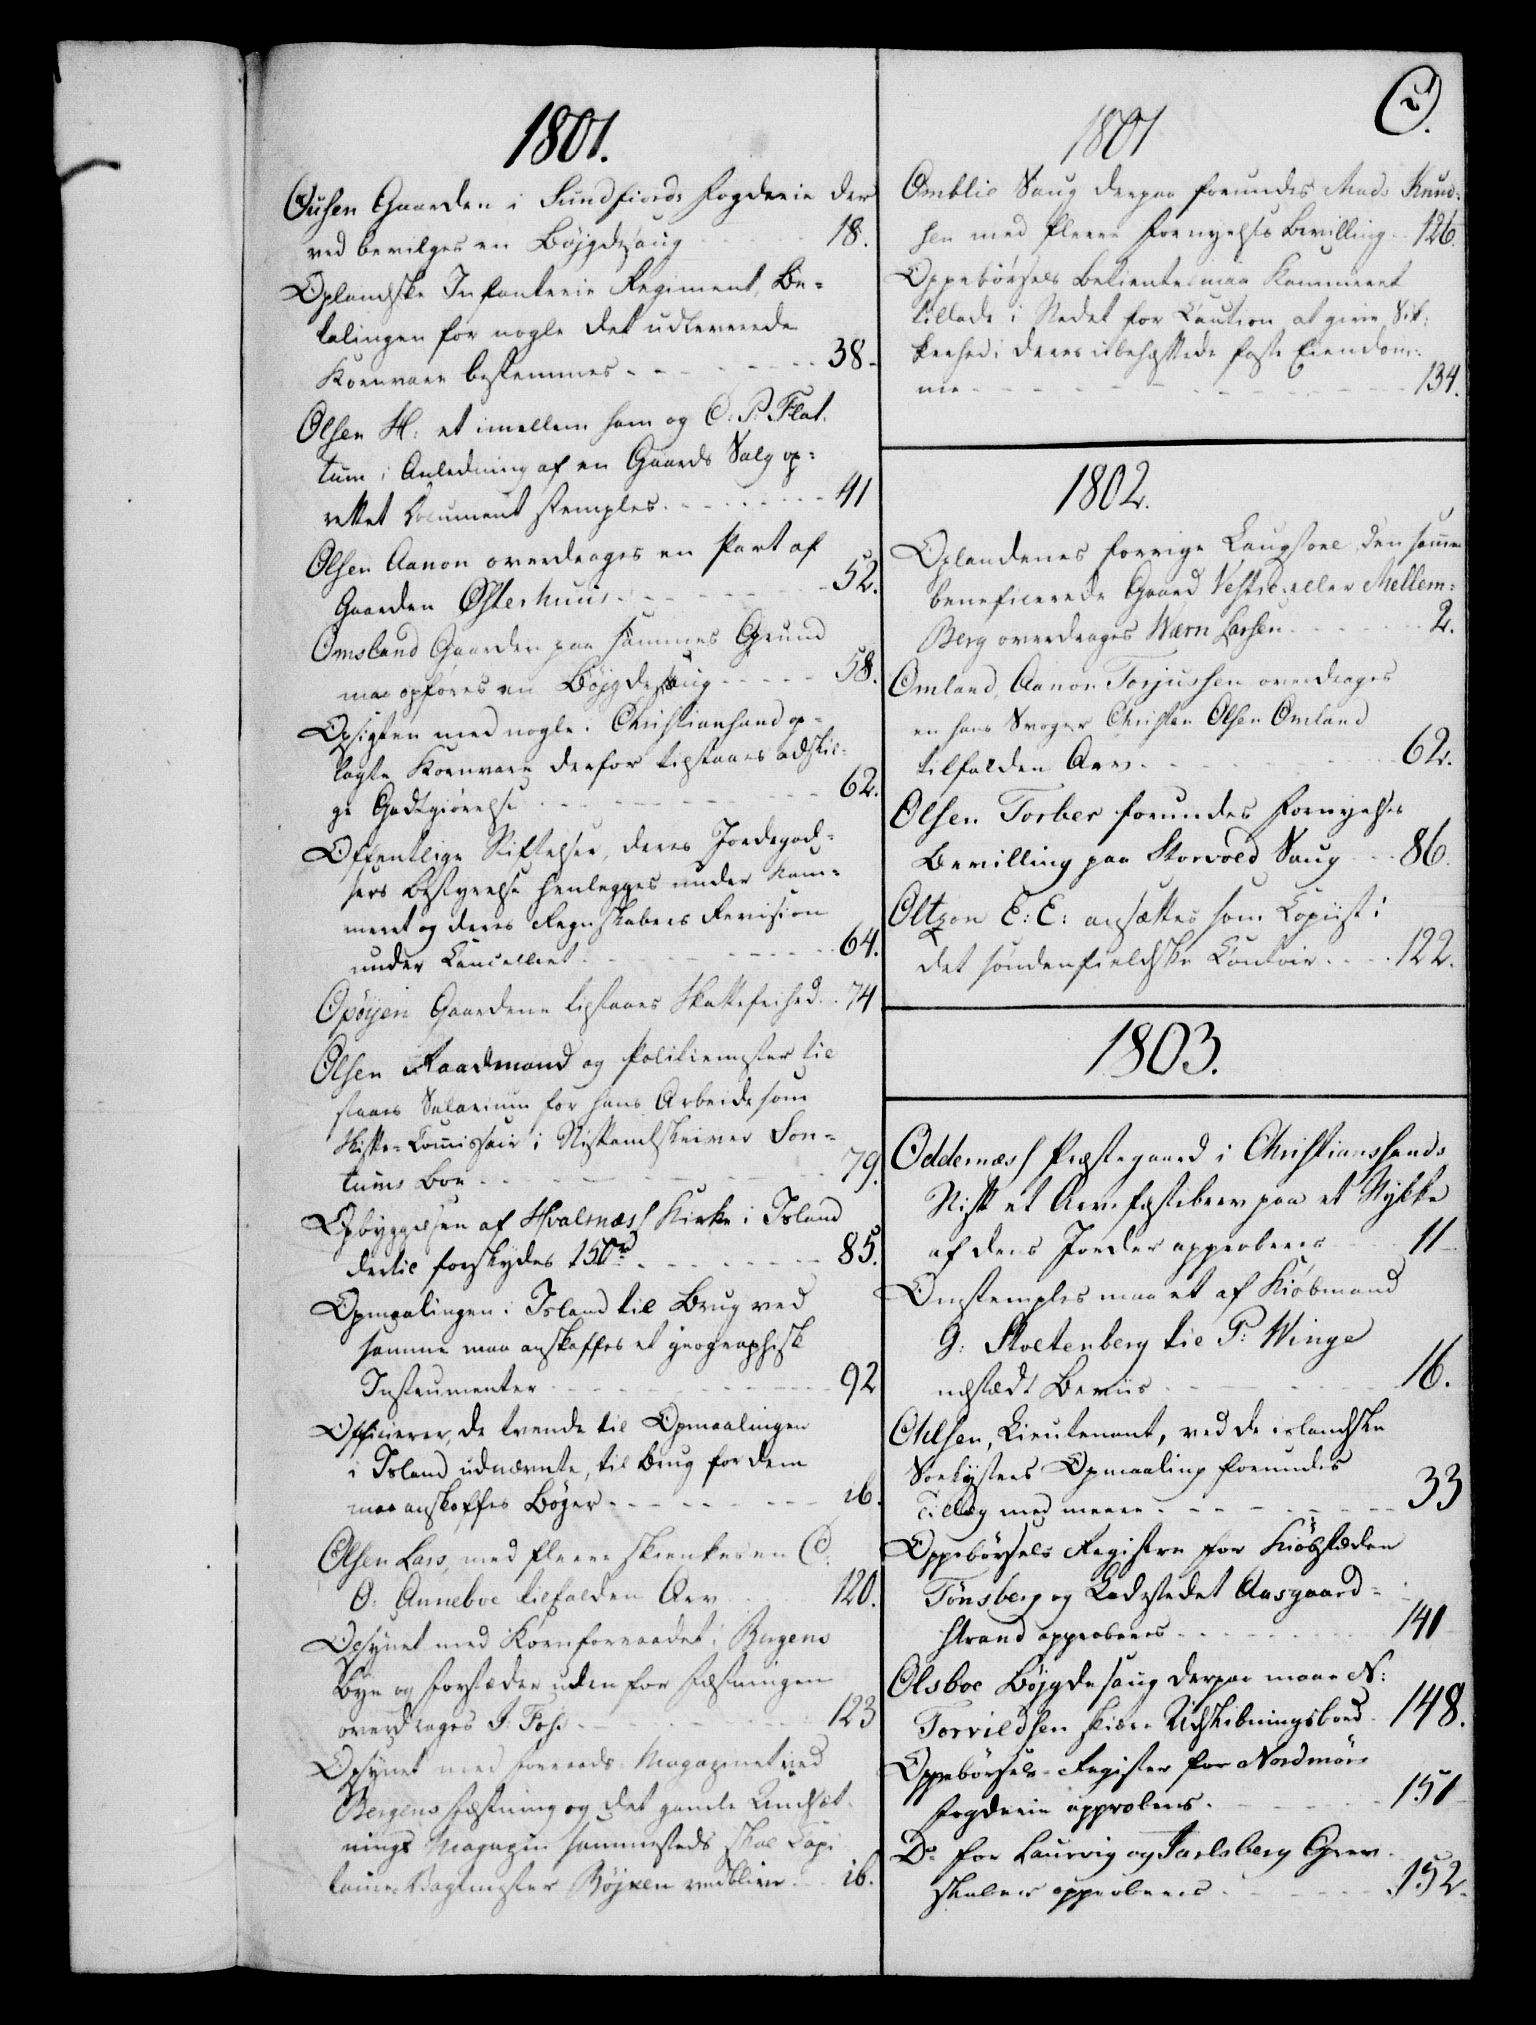 1801.
Ousen Gaarden i Sundfiords Fogderie der
ved bevilges en Böjgdesaug 18.
Oplandske Infanterie Regiment, Be=
talingen for nogle det udleverede
Kornvare bestemmes 38.
Olsen H: et imellem ham og C: P: Flat,
tum i Anledning af en Gaards Salg op=
rettet Document stemples 41
Olsen Aanon overdrages en Part af
Gaarden Østerhuus 52.
Omsland Gaarden paa sammes Grund
maa opføres en Böjgdesaug 58.
Opsigten med nogle i Christiansand op=
lagte Kornvare derfor tilstaaes adskil=
ge Godtgiørelse 62.
Offentlige Stiftelser, deres Jordegod=
sers Bestyrelse henlegges under Kam=
meret og deres Regnskabers Revision
under Cancelliet 64.
Opöyen Gaardene tilstaaes Skattefrihed 74
Olsen Raadmand og Politiemester til
staaes Salarium for hans Arbeide som
Skifte=Commissair i Stiftamtskriver Son=
tums Boe 79.
Opbyggelsen af Hvalsnæss Kirke i Island
dertil forskydes 150 rd 85.
Opmaalingen i Island til Brug ved
samme maa anskaffes et geographisk
Instrumenter 92
Officierer, de tvende til Opmaalingen
i Island udnævnte, til Brug for dem
maa anskaffes Böger ib.
Olsen Lars, med fleere skienkes en C:
O: Anneboe tilfalden Arv 120.
Opsynet med Kornforraadet i Bergens
Bye og Forstæder uden for Fæstningen
overdrages J: Foss 123
Opsynet med Forraads Magazinet ved
Bergens Fæstning og det gamle Undsæt
nings Magazin sammesteds skal Capi
taine Vagtmester Böjsen vedblive ib.
2.
1801
Omblie Saug derpaa forundes Mads Knud=
sen med fleere Fornyelses Bevilling 126.
Oppebörsels Betiente maa Kammeret
tillade i Stedet for Caution at give Sik=
kerhed i deres ubehæftede faste Eiendom=
me 134.
1802.
Oplandenes forrige Laugstoel, den samme
beneficerede Gaard Vestre eller Mellem=
Berg overdrages Wærn Larsen 2.
Omland, Aanon Torjussen overdrages
en hans Svoger Christen Olsen Omland
tilfalden Arv 62.
Olsen Torber forundes Fornyelses
Bevilling paa Storvold Saug 86.
Oltzon E: E: ansættes som Copiist i
det søndenfieldske Contoir 122.
1803.
Oddernæss Præstegaard i Christianssands
Stift et Arvefæstebrev paa et Stykke
af dens Jorder approberes 11
Omstemples maa et af Kiöbmand
G: Stoltenberg til P: Winge
udstædt Beviis 16.
Ohlsen, Lieutenant, ved de islandske
Søekysters Opmaaling forundes
Tillæg med meere 33
Oppebörsels Registre for Kiöbstæden
Tönsberg og Ladestedet Aasgaard=
strand approberes 141
Olsboe Böjgdesaug derpaa maae N:
Torvildsen skiære Udskibningsbord 148.
Oppebörsels=Register for Nordmörs
Fogderie approberes 151
Do for Laurvig og Jarlsberg Grev
skaber approberes 152.